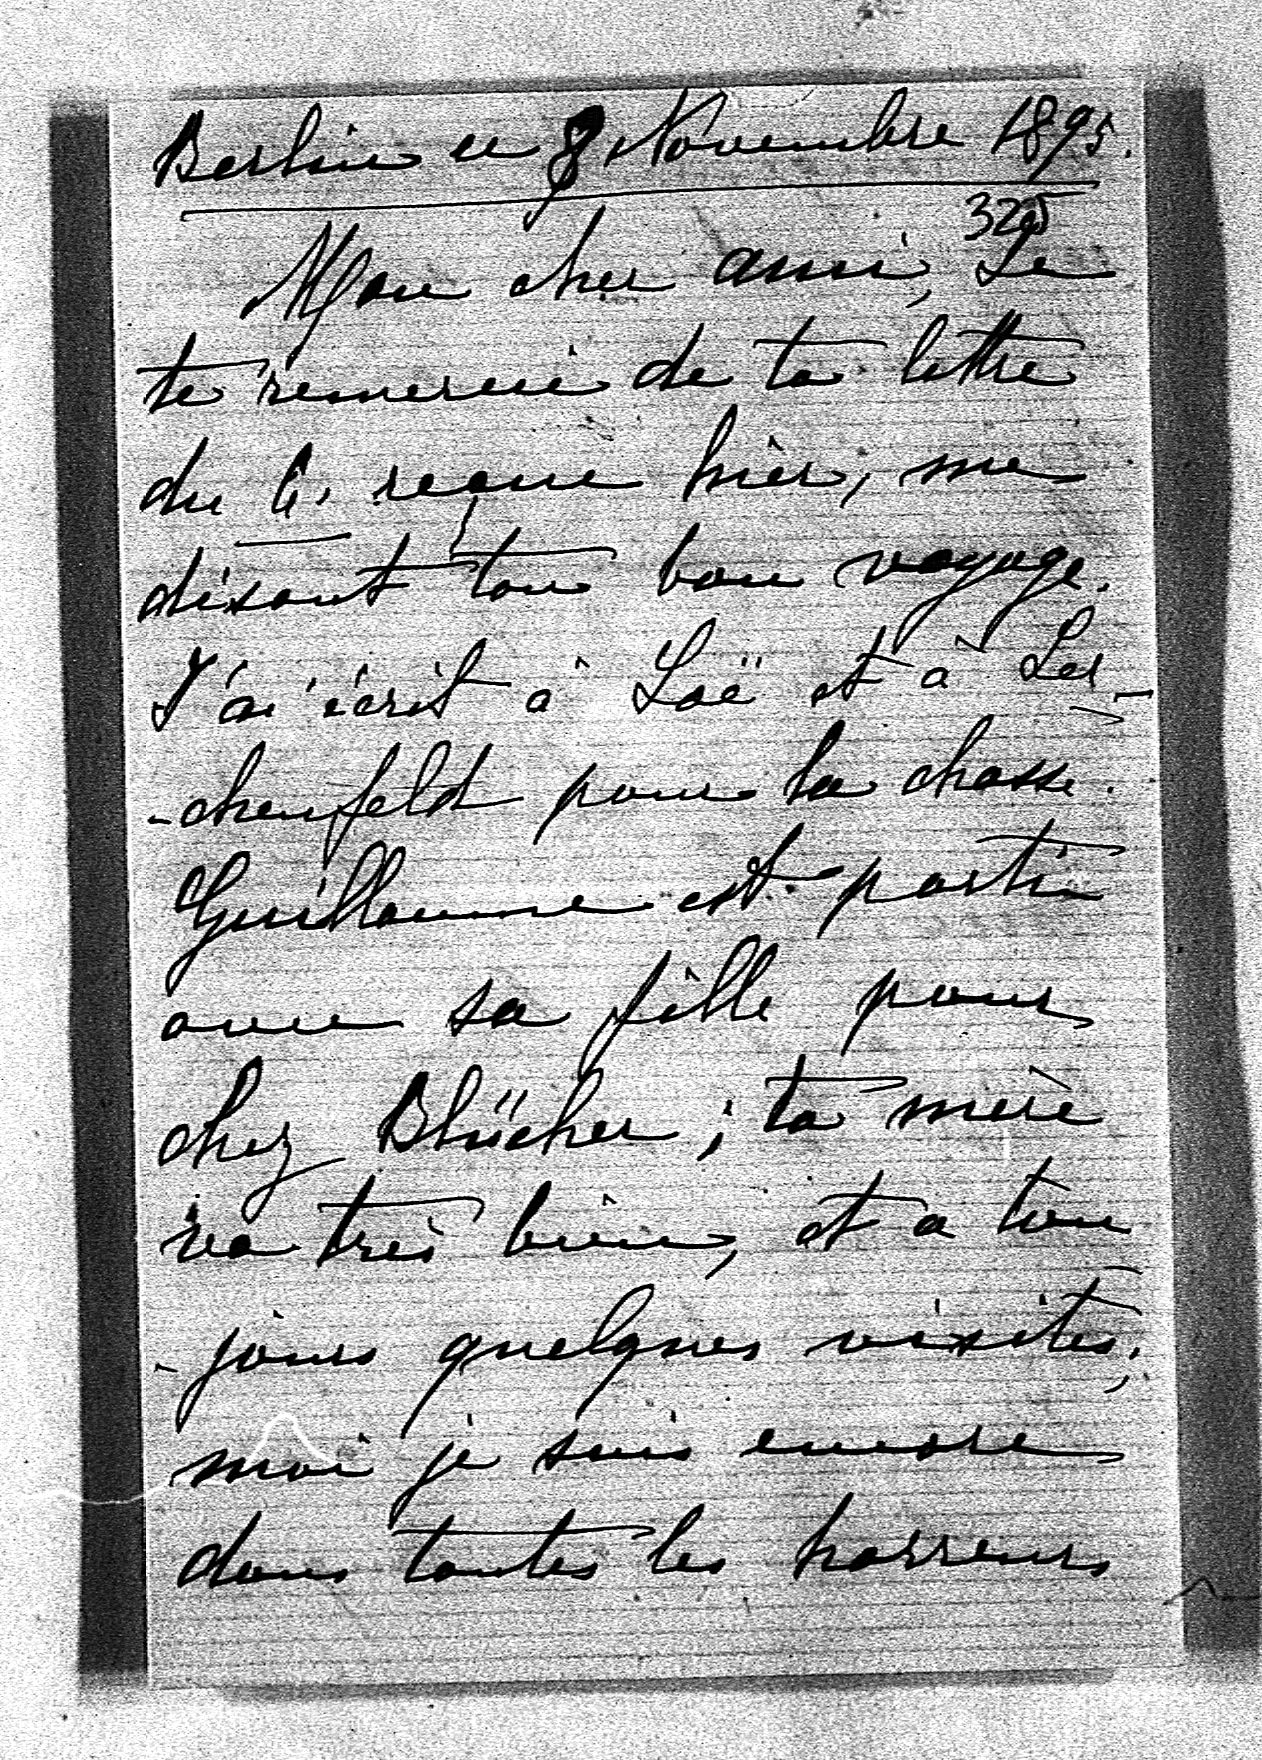 Berlin ce 8 Novembre 1895.
325
Mon cher ami, Je
te remercie de ta lettre
du 6. reçue hier, me
disant ton bon voyage.
J'ai écrit à Loë et à Ler-
-chenfeld pour la chasse.
Guillaume est parti
avec sa fille pour
chez Blücher; ta mère
va très bien, et a tou
-jours quelques visites;
moi je suis encore
dans toutes les horreurs